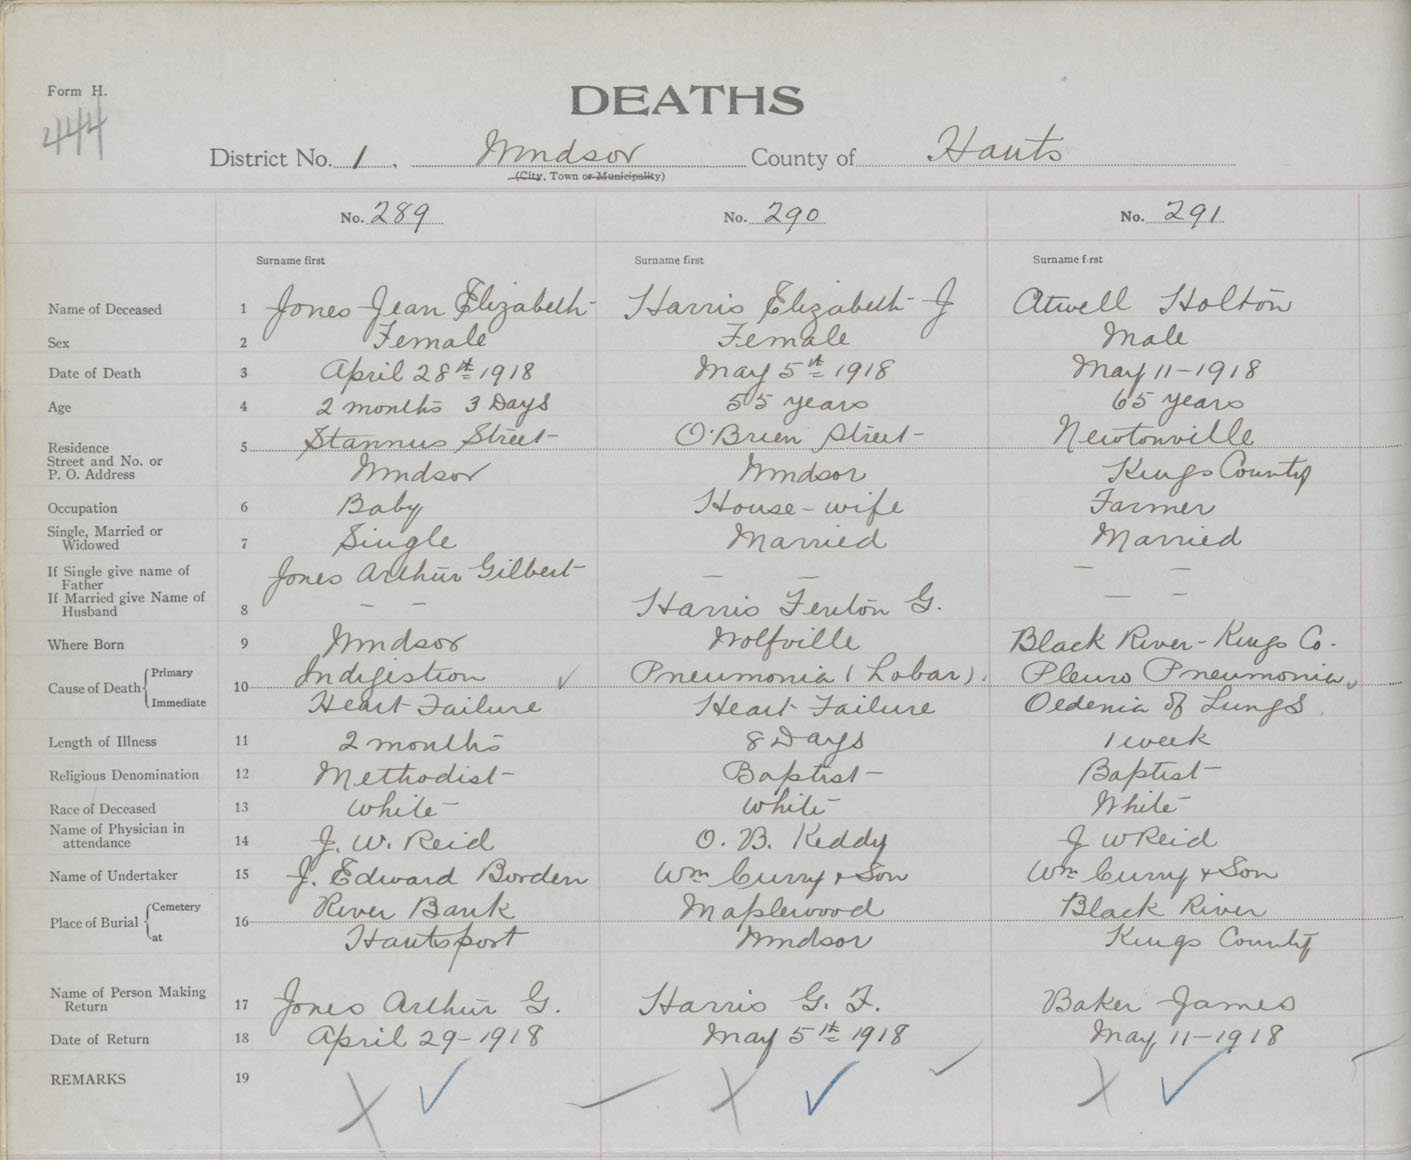 Form H.
DEATHS
444
District No. 1. Windsor County of Hants
(City, Town or Municipality)
No. 289 No. 290 No. 291
Surname first Surname first Surname first
Name of Deceased 1 Jones Jean Elizabeth Harris Elizabeth J Atwell Holton
Sex 2 Female Female Male
Date of Death 3 April 28th 1918 May 5th 1918 May 11-1918
Age 4 2 months 3 Days 55 years 65 years
Residence 5 Stannus Street O'Brien Street Newtonville
Street and No. or
P. O. Address Windsor Windsor Kings County
Occupation 6 Baby House-wife Farmer
Single, Married or
Widowed 7 Single Married Married
If Single give name of
Father Jones Arthur Gilbert — — — —
If Married give Name of
Husband 8 — — Harris Fenton G. — —
Where Born 9 Windsor Wolfville Black River-Kings Co.
Cause of Death Primary 10 Indigestion ✓ Pneumonia (Lobar). Pleuro Pneumonia ✓
Immediate Heart Failure Heart Failure Oedenia of Lungs
Length of Illness 11 2 months 8 Days 1 week
Religious Denomination 12 Methodist Baptist Baptist
Race of Deceased 13 White White White
Name of Physician in
attendance 14 J. W. Reid O. B. Keddy J W Reid
Name of Undertaker 15 J. Edward Borden Wm Curry & Son Wm Curry & Son
Place of Burial Cemetery 16 River Bank Maplewood Black River
at Hantsport Windsor Kings County
Name of Person Making
Return 17 Jones Arthur G. Harris G. F. Baker James
Date of Return 18 April 29-1918 May 5th 1918 May 11-1918
REMARKS 19 X ✓ X ✓ X ✓